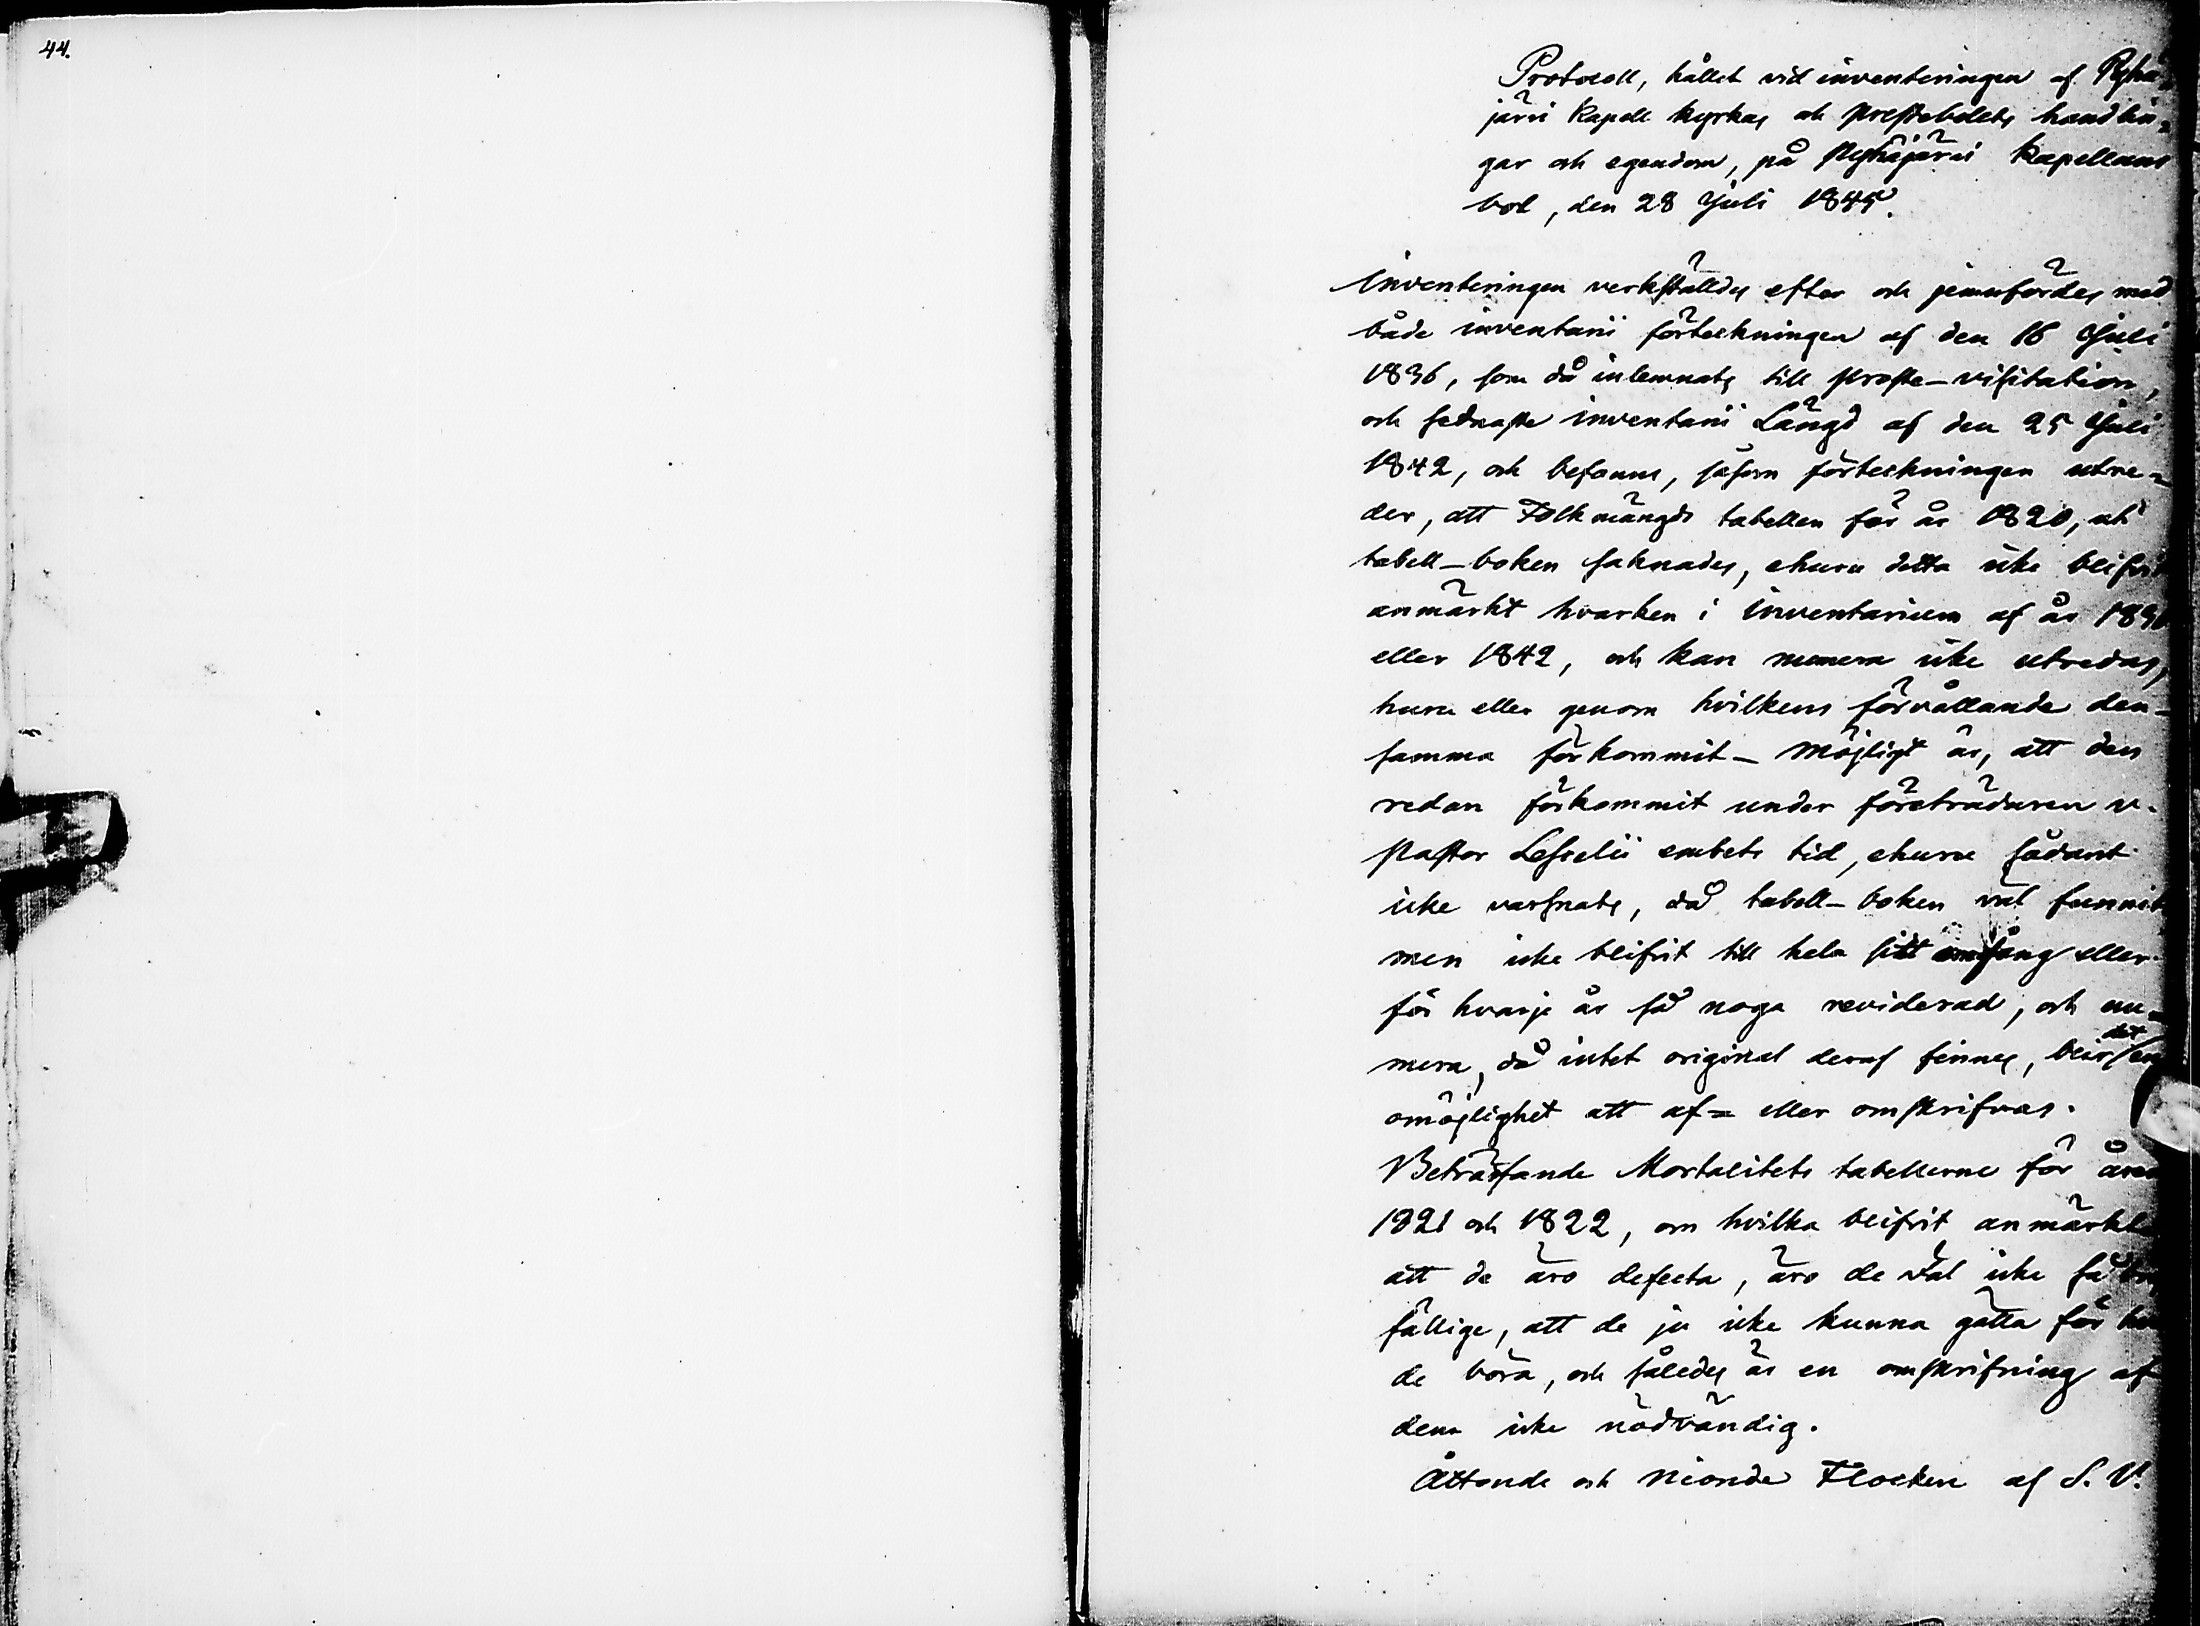 44.
Protocoll, hållet vid inventeringen af Pyhä-
järvi Kapell kyrkas och prestebolets handlin-
gar och egendom, på Pyhäjärvi Kapellans
bol, den 28 Juli 1845.
Inventeringen verkställdes efter och jemnfördes med
både inventarii förteckningen af den 16 Juli
1836, som då inlemnats till proste-visitation,
och sednaste inventarii Längd af den 25 Juli
1842, och befanns, såsom förteckningen utre-
der, att Folkmängds tabellen för år 1820, uti
tabell-boken saknades, ehuru detta icke blifvit
anmärkt hvarken i inventarium af år 1836
eller 1842, och kan numera icke utredas,
huru eller genom hvilkens förvållande den-
samma förkommit – Möjligt är, att den
redan förkommit under företrädaren v.
pastor Lesselii embets tid, ehuru sådant
icke varsnats, då tabell-boken väl funnits
men icke blifvit till hela sitt omfång eller
för hvarje år så noga reviderad, och nu-
mera, då intet original deraf finnes, blir det en
omöjlighet att af- eller omskrifvas.
Beträffande Mortalitets tabellerne för åren
1821 och 1822, om hvilka blifvit anmärkt
att de äro defecta, äro de väl icke så
fällige, att de ju icke kunna gälla för
de böra, och således är en omskrifning af
dem icke nödvändig.
Åttonde och nionde Flocken af S. V.